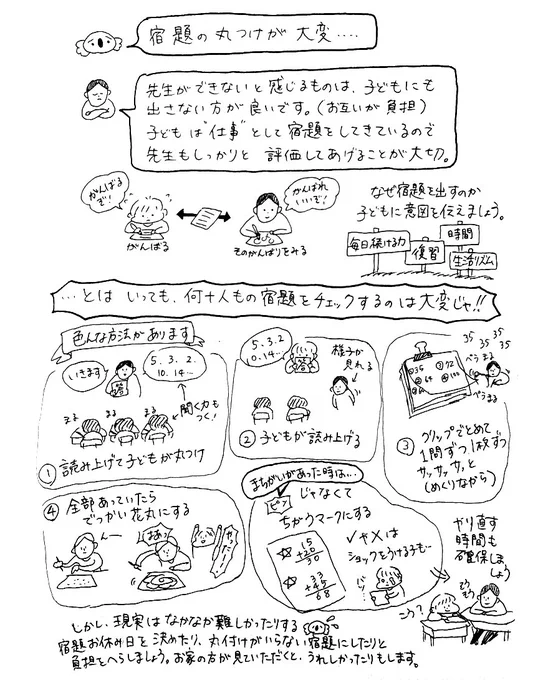 宿題の丸つけが 大変‥‥
先生ができないと感じるものは、子どもにも
出さない方が良いです。(お互いが負担)
子どもは"仕事"として宿題をしてきているので
先生もしっかりと 評価してあげることが大切。
がんばる
ぞ!
がんばれ
いいぞ!
がんばる
そのがんばりをみる
なぜ宿題を出すのか
子どもに意図を伝えましょう。
毎日続ける力
復習
時間
生活リズム
…とは いっても、何十人もの宿題をチェックするのは大変じゃ!!
色んな方法があります
いきます
答
5.3.2.
10.14…
聞く力も
つく!
まる
まる
① 読み上げて子どもが丸つけ
5.3.2
10.14…
答
様子が
見れる
② 子どもが読み上げる
35 35 35
35 35
ぺらまる
ぺらまる
③ クリップでとめて
1問ずつ1枚ずつ
サッサッサッと
(めくりながら)
④ 全部あっていたら
でっかい花丸にする
んー
おあっ
やったー
まちがいがあった時は…
ピン
じゃなくて
ちがうマークにする
15
+20
30
33
+45
68
✓や×は
ショックをうける子も…
やり直す
時間も
確保しま
しょう
こう?
そうそう
しかし、現実は なかなか難しかったりする
宿題お休み日を決めたり、丸付けがいらない宿題にしたりと
負担をへらしましょう。お家の方が見ていただくと、うれしかったりもします。